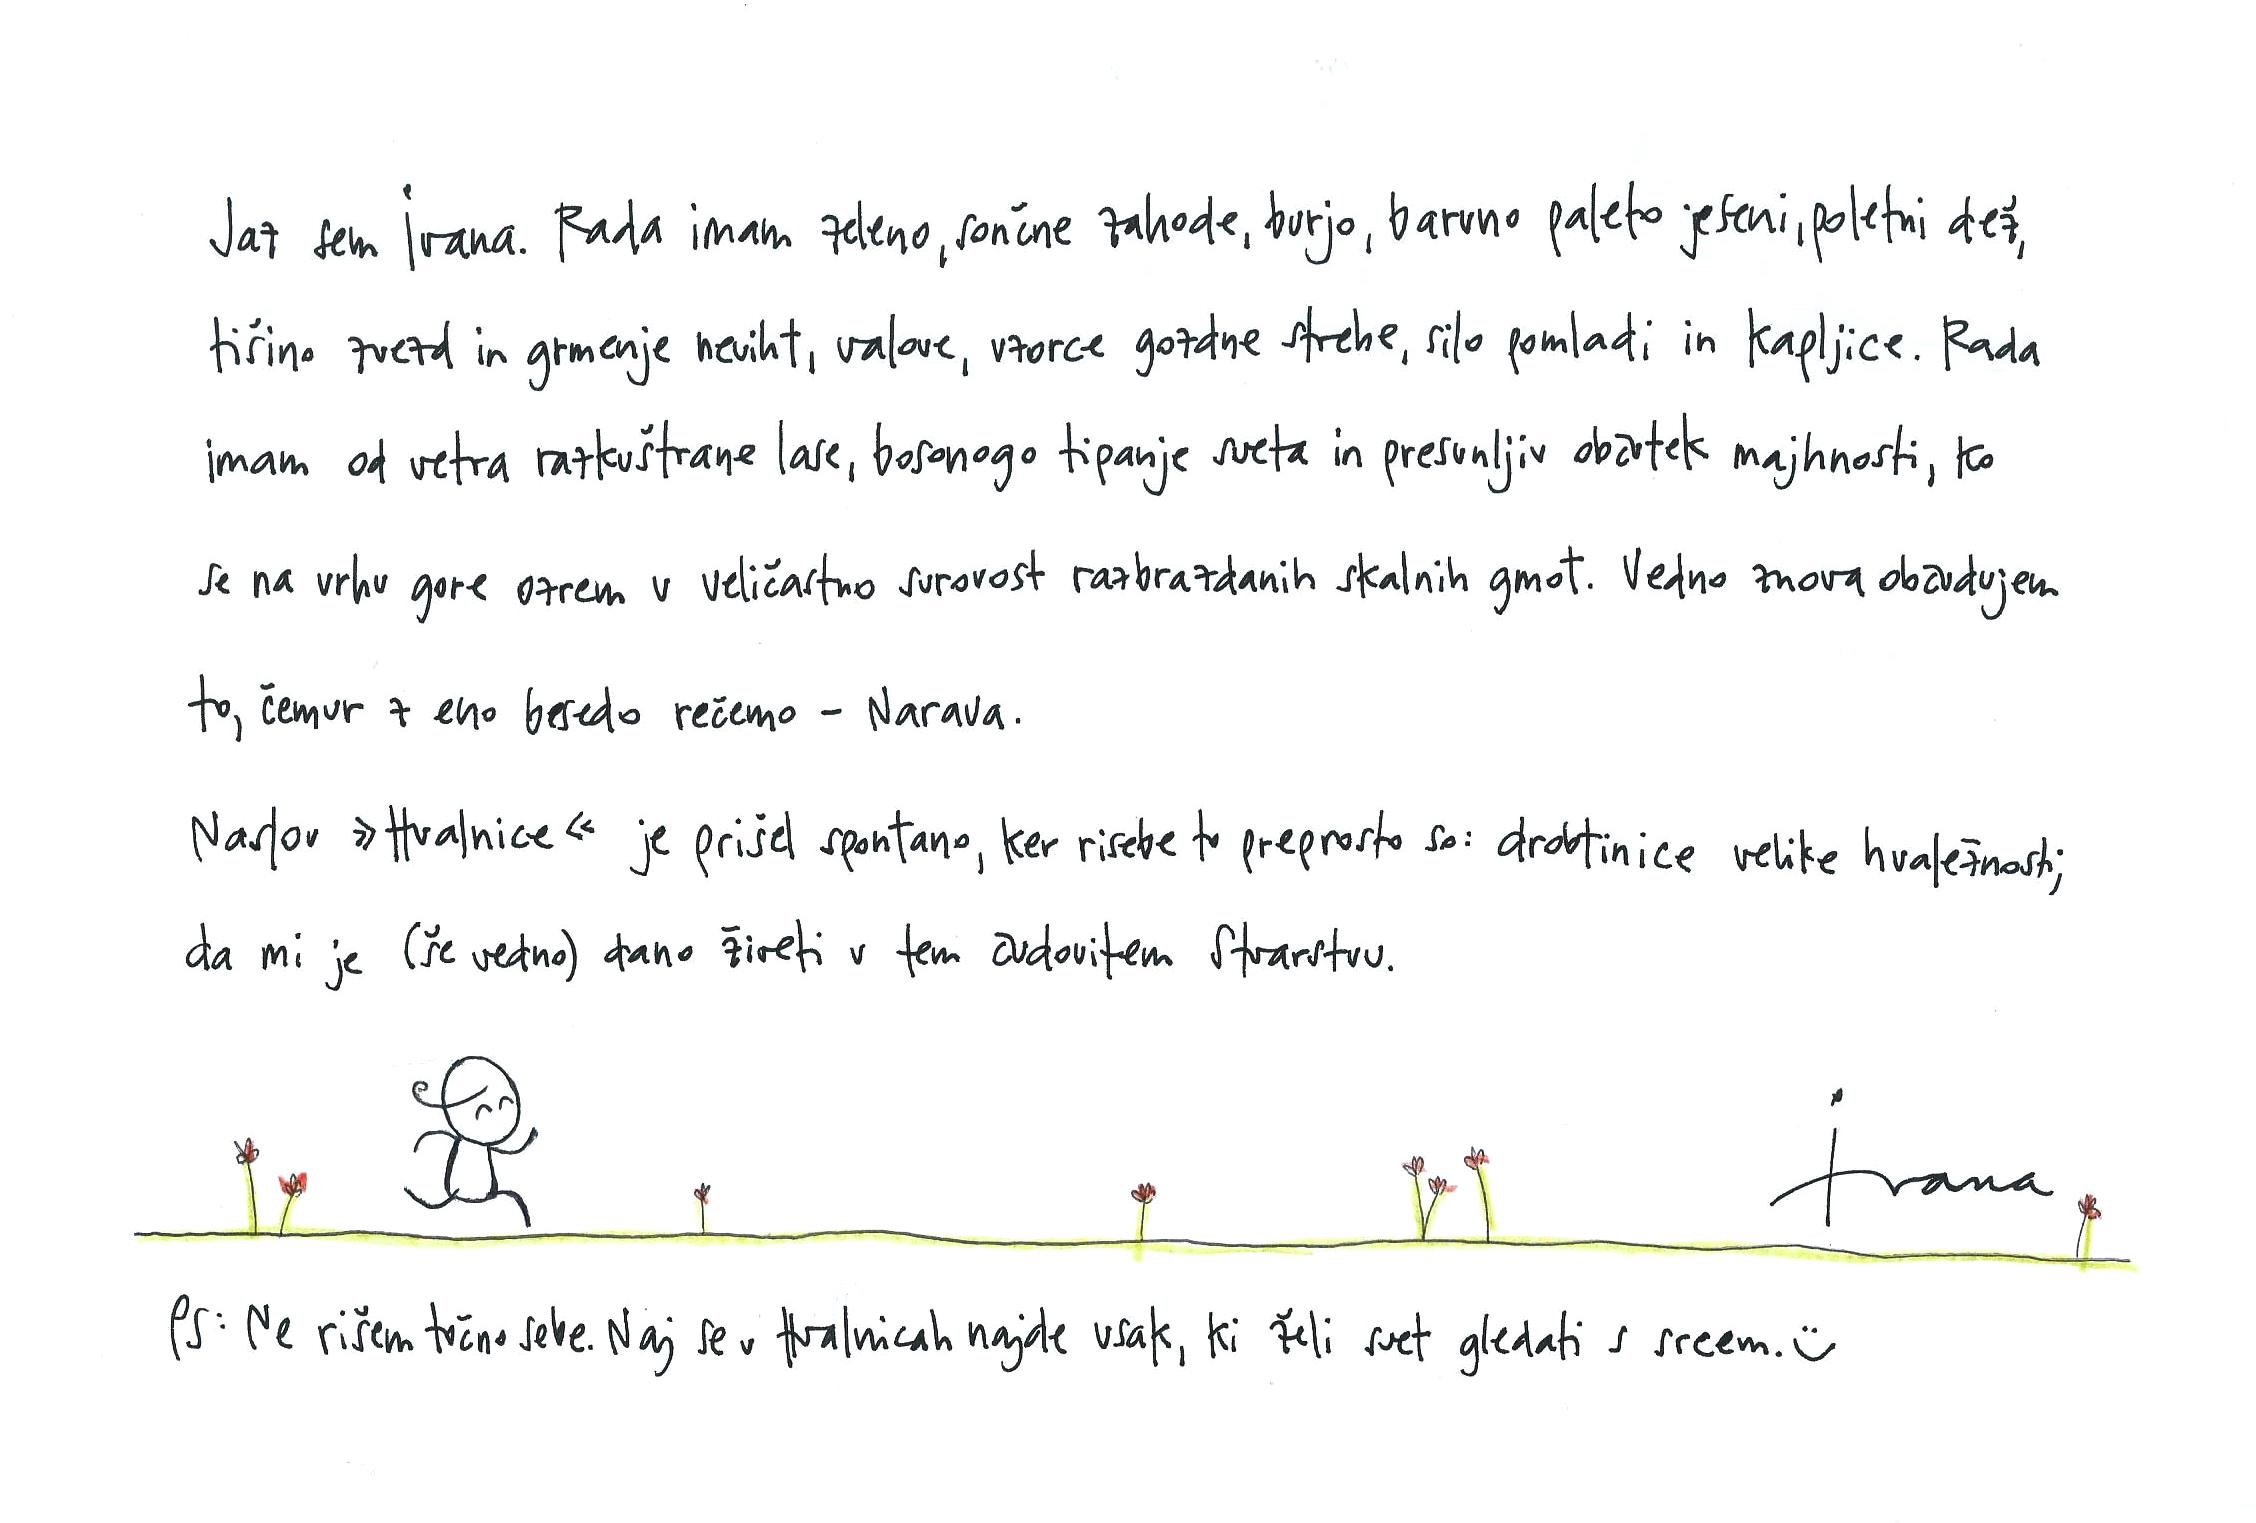 Jaz sem Ivana. Rada imam zeleno, sončne zahode, burjo, barvno paleto jeseni, poletni dež,
tišino zvezd in grmenje neviht, valove, vzorce gozdne strehe, silo pomladi in kapljice. Rada
imam od vetra razkuštrane lase, bosonogo tipanje sveta in presunljiv občutek majhnosti, ko
se na vrhu gore ozrem v veličastno surovost razbrazdanih skalnih gmot. Vedno znova občudujem
to, čemur z eno besedo rečemo - Narava.
Naslov »Hvalnice« je prišel spontano, ker risbe to preprosto so: drobtinice velike hvaležnosti,
da mi je (še vedno) dano živeti v tem čudovitem Stvarstvu.
Ivana
PS: Ne rišem točno sebe. Naj se v Hvalnicah najde vsak, ki želi svet gledati s srcem. ü